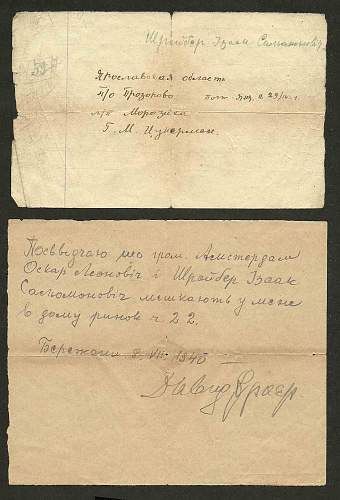 Шрайбер Ізаак Саломонович
Ярославская область
П/О Прозоково
л/п Морозиха
Г. М. Цукерман.
Посвідчаю що гром. Амстердам
Оскар Леонович і Шрайбер Ізаак
Саломонович мешкають у мене
в дому ринок ч 22.
Бережани 8. VII. 1940
Давид Фраєр